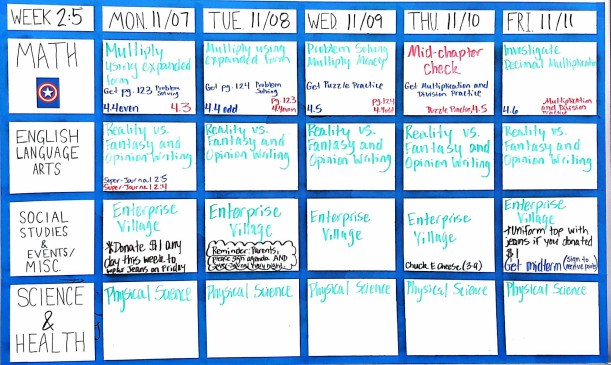 WEEK 2:5
MON. 11/07
TUE 11/08
WED. 11/09
THU. 11/10
FRI. 11/11
MATH
Multiply
using expanded
form
Get pg. 123 Problem
Solving
4.4 even 4.3
Multiply using
expanded form
Get pg. 124 Problem
Solving
4.4 odd
pg. 123
4.4 even
Problem Solving
Multiply Money
Get Puzzle Practice
4.5
pg. 124
4.4 odd
Mid-chapter
Check
Get Multiplication and
Division Practice
Puzzle Practice 4.5
Investigate
Decimal Multiplication
4.6
Multiplication
and Division
ENGLISH
LANGUAGE
ARTS
Reality vs.
Fantasy and
Opinion Writing
Super-Journal 2:5
Super-Journal 2:4
Reality vs.
Fantasy and
Opinion Writing
Reality vs.
Fantasy and
Opinion Writing
Reality vs.
Fantasy and
Opinion Writing
Reality vs.
Fantasy and
Opinion Writing
SOCIAL
STUDIES
&
EVENTS/
MISC.
Enterprise
Village
*Donate $1 any
day this week to
wear jeans on Friday
Enterprise
Village
Reminder: Parents,
please sign agenda AND
Enterprise
Village
Enterprise
Village
Chuck E Cheese (3-9)
Enterprise
Village
*Uniform top with
jeans if you donated
$1
Get midterm (sign to
SCIENCE
&
HEALTH
Physical Science
Physical Science
Physical Science
Physical Science
Physical Science